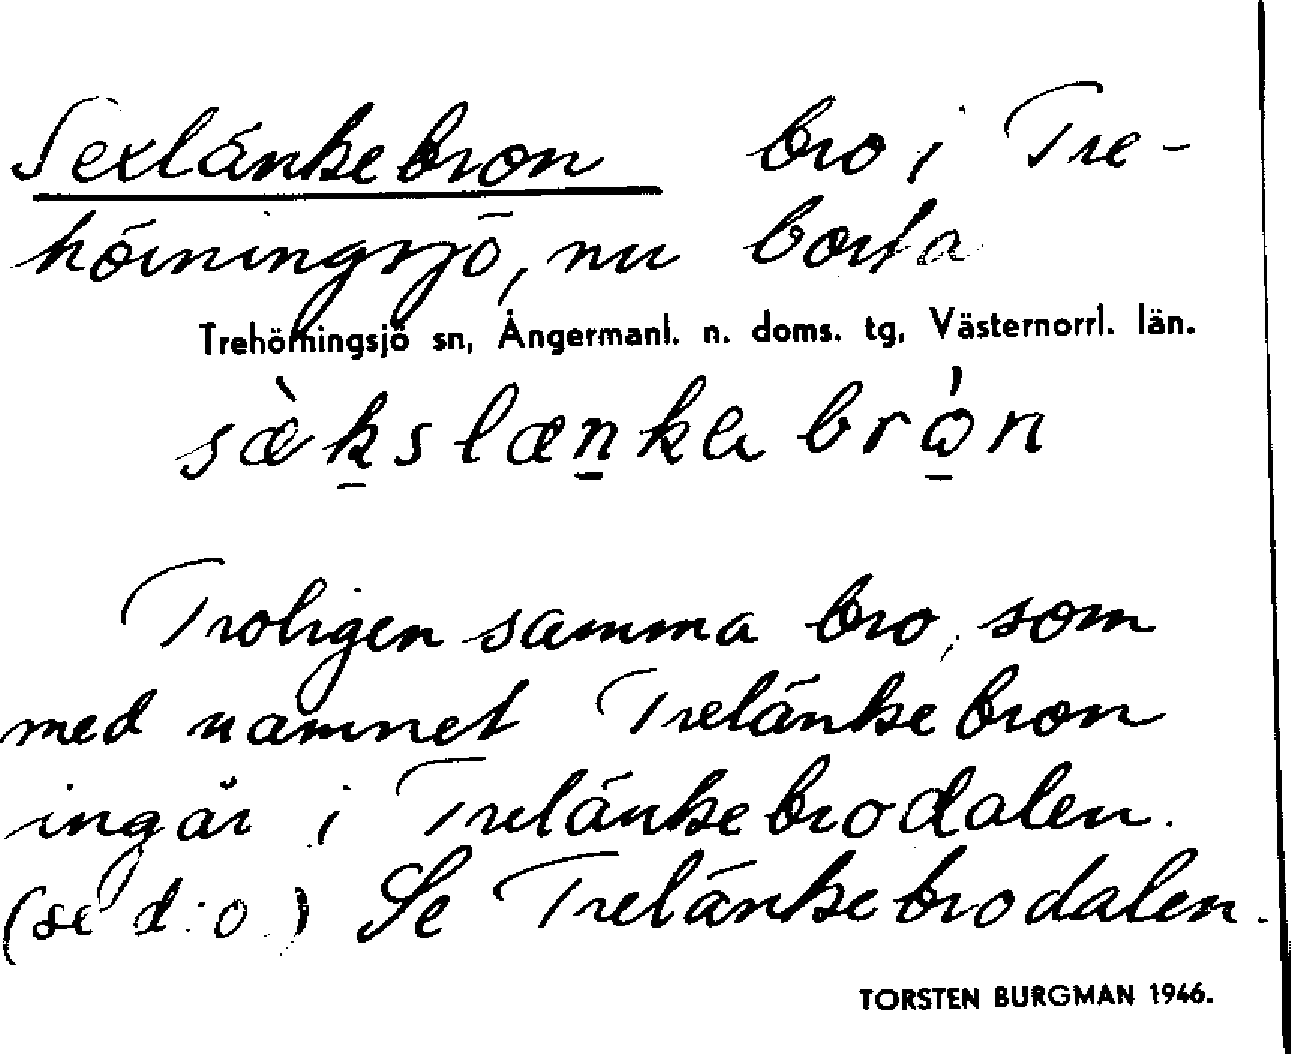 Sexlänkebron bro i Tre-
hörningsjö, nu borta
Trehörningsjö sn, Ångermanl. n. doms. tg, Västernorrl. län.
sæ̀kslænka brò̱n
Troligen samma bro, som
med namnet Trelänkebron
ingår i Trelänkebrodalen.
(se d:o.) Se Trelänkebrodalen.
TORSTEN BURGMAN 1946.